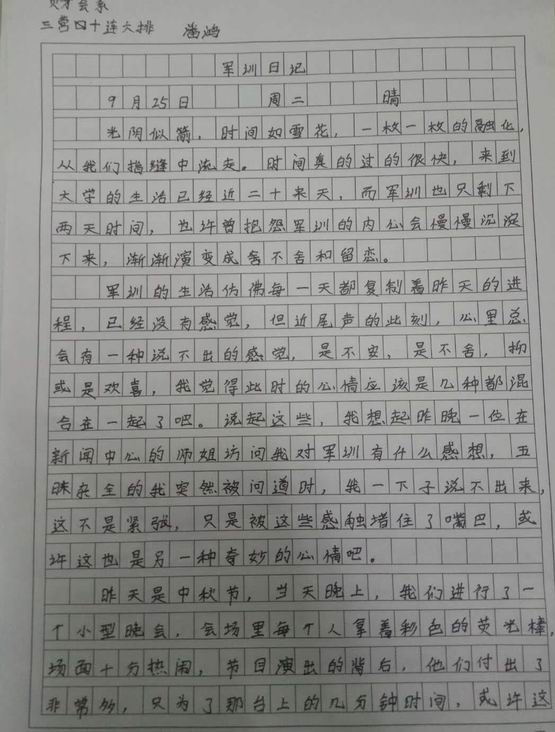 财才会系
三营四十连六排 潘鸿
军训日记
9月25日 周二 晴
光阴似箭，时间如雪花，一枚一枚的融化，
从我们指缝中流失。时间真的过的很快，来到
大学的生活已经近二十来天，而军训也只剩下
两天时间，也许曾抱怨军训的内心会慢慢沉淀
下来，渐渐演变成舍不舍和留恋。
军训的生活仿佛每一天都复制着昨天的进
程，已经没有感觉，但近尾声的此刻，心里总
会有一种说不出的感觉，是不安，是不舍，抑
或是欢喜，我觉得此时的心情应该是几种都混
合在一起了吧。说起这些，我想起昨晚一位在
新闻中心的师姐访问我对军训有什么感想，五
味杂全的我突然被问道时，我一下子说不出来，
这不是紧张，只是被这些感触堵住了嘴巴，或
许这也是另一种奇妙的心情吧。
昨天是中秋节，当天晚上，我们进行了一
个小型晚会，会场里每个人拿着彩色的荧光棒，
场面十分热闹，节目演出的背后，他们付出了
非常多，只为了那台上的几分钟时间，或许这